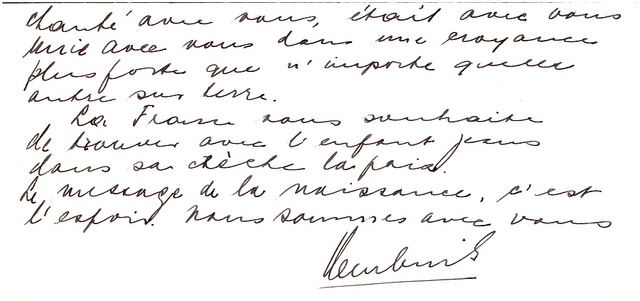 chanté avec vous, était avec vous
unie avec vous dans une croyance
plus forte que n'importe quelle
autre sur terre.
La France vous souhaite
de trouver avec l'enfant jesus
dans sa crèche la paix.
Le message de la naissance, c'est
l'espoir. Nous sommes avec vous